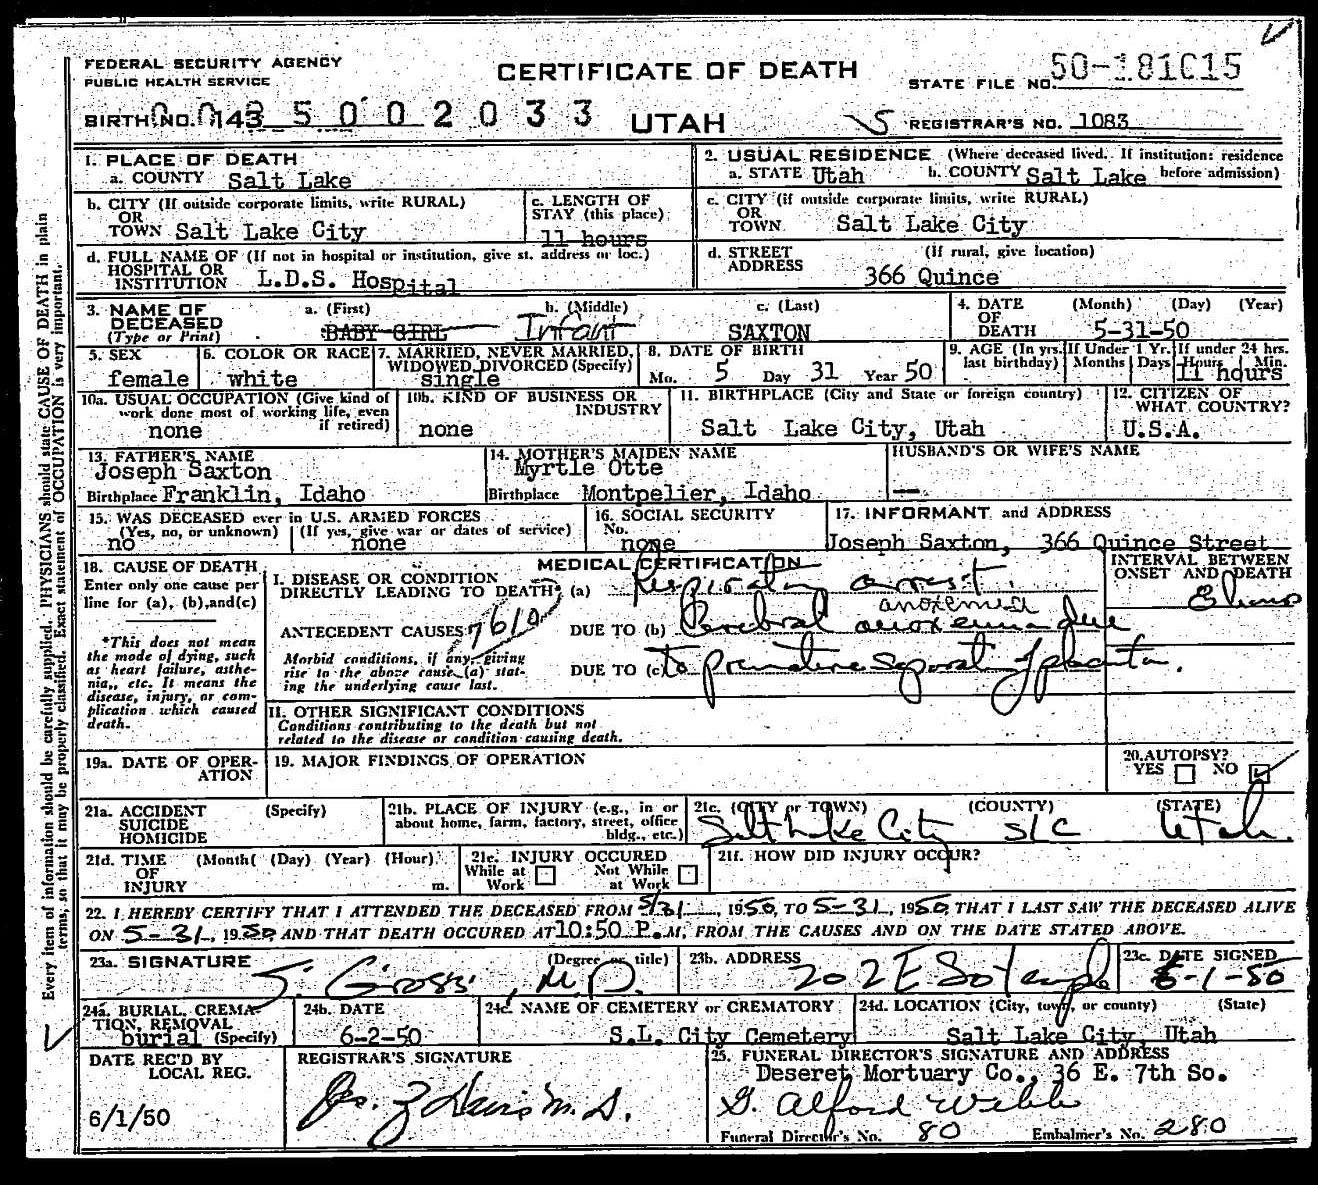 FEDERAL SECURITY AGENCY
PUBLIC HEALTH SERVICE
CERTIFICATE OF DEATH
STATE FILE NO. 50-181015
BIRTH NO. 143 5 0 0 2 0 3 3
UTAH
REGISTRAR'S NO. 1083
1. PLACE OF DEATH
a. COUNTY Salt Lake
2. USUAL RESIDENCE (Where deceased lived. If institution: residence before admission)
a. STATE Utah b. COUNTY Salt Lake
b. CITY (If outside corporate limits, write RURAL)
OR
TOWN Salt Lake City
c. LENGTH OF
STAY (this place)
11 hours
c. CITY (if outside corporate limits, write RURAL)
OR
TOWN Salt Lake City
d. FULL NAME OF (If not in hospital or institution, give st. address or loc.)
HOSPITAL OR
INSTITUTION L.D.S. Hospital
d. STREET
ADDRESS
(If rural, give location)
366 Quince
3. NAME OF
DECEASED
(Type or Print)
a. (First) b. (Middle) c. (Last)
BABY GIRL Infant SAXTON
4. DATE
OF
DEATH
(Month) (Day) (Year)
5-31-50
5. SEX
female
6. COLOR OR RACE
white
7. MARRIED, NEVER MARRIED,
WIDOWED, DIVORCED (Specify)
single
8. DATE OF BIRTH
Mo. 5 Day 31 Year 50
9. AGE (In yrs. last birthday)
If Under 1 Yr. Months Days
If under 24 hrs. Hours Min.
11 hours
10a. USUAL OCCUPATION (Give kind of
work done most of working life, even
if retired)
none
10b. KIND OF BUSINESS OR
INDUSTRY
none
11. BIRTHPLACE (City and State or foreign country)
Salt Lake City, Utah
12. CITIZEN OF
WHAT COUNTRY?
U.S.A.
13. FATHER'S NAME
Joseph Saxton
Birthplace Franklin, Idaho
14. MOTHER'S MAIDEN NAME
Myrtle Otte
Birthplace Montpelier, Idaho
HUSBAND'S OR WIFE'S NAME
—
15. WAS DECEASED ever in U.S. ARMED FORCES
(Yes, no, or unknown) (If yes, give war or dates of service)
no none
16. SOCIAL SECURITY
No.
none
17. INFORMANT and ADDRESS
Joseph Saxton, 366 Quince Street
18. CAUSE OF DEATH
Enter only one cause per
line for (a), (b), and (c)
*This does not mean
the mode of dying, such
as heart failure, asthe-
nia, etc. It means the
disease, injury, or com-
plication which caused
death.
MEDICAL CERTIFICATION
INTERVAL BETWEEN
ONSET AND DEATH
I. DISEASE OR CONDITION
DIRECTLY LEADING TO DEATH* (a) Respiratory arrest.
anoxemia
ANTECEDENT CAUSES 7610 DUE TO (b) Cerebral anoxemia due
Morbid conditions, if any, giving
rise to the above cause (a) stat-
ing the underlying cause last.
DUE TO (c) to premature separat of placenta.
II. OTHER SIGNIFICANT CONDITIONS
Conditions contributing to the death but not
related to the disease or condition causing death.
19a. DATE OF OPER-
ATION
19. MAJOR FINDINGS OF OPERATION
20. AUTOPSY?
YES NO
21a. ACCIDENT
SUICIDE
HOMICIDE
(Specify)
21b. PLACE OF INJURY (e.g., in or
about home, farm, factory, street, office
bldg., etc.)
21c. (CITY or TOWN) (COUNTY) (STATE)
Salt Lake City SLC Utah.
21d. TIME (Month( (Day) (Year) (Hour)
OF
INJURY m.
21e. INJURY OCCURED
While at Work Not While at Work
21f. HOW DID INJURY OCCUR?
22. I HEREBY CERTIFY THAT I ATTENDED THE DECEASED FROM 5/31, 1950, TO 5-31, 1950, THAT I LAST SAW THE DECEASED ALIVE
ON 5-31, 1950, AND THAT DEATH OCCURED AT 10:50 P.M, FROM THE CAUSES AND ON THE DATE STATED ABOVE.
23a. SIGNATURE (Degree or title)
J. Gross, M.D.
23b. ADDRESS
202 E So Temple
23c. DATE SIGNED
6-1-50
24a. BURIAL, CREMA-
TION, REMOVAL
burial (Specify)
24b. DATE
6-2-50
24c. NAME OF CEMETERY or CREMATORY
S.L. City Cemetery
24d. LOCATION (City, town, or county) (State)
Salt Lake City, Utah
DATE REC'D BY
LOCAL REG.
6/1/50
REGISTRAR'S SIGNATURE
M.D.
25. FUNERAL DIRECTOR'S SIGNATURE AND ADDRESS
Deseret Mortuary Co., 36 E. 7th So.
G. Alford Webb
Funeral Director's No. 80 Embalmer's No. 280
Every item of information should be carefully supplied. PHYSICIANS should state CAUSE OF DEATH in plain
terms, so that it may be properly classified. Exact statement of OCCUPATION is very important.